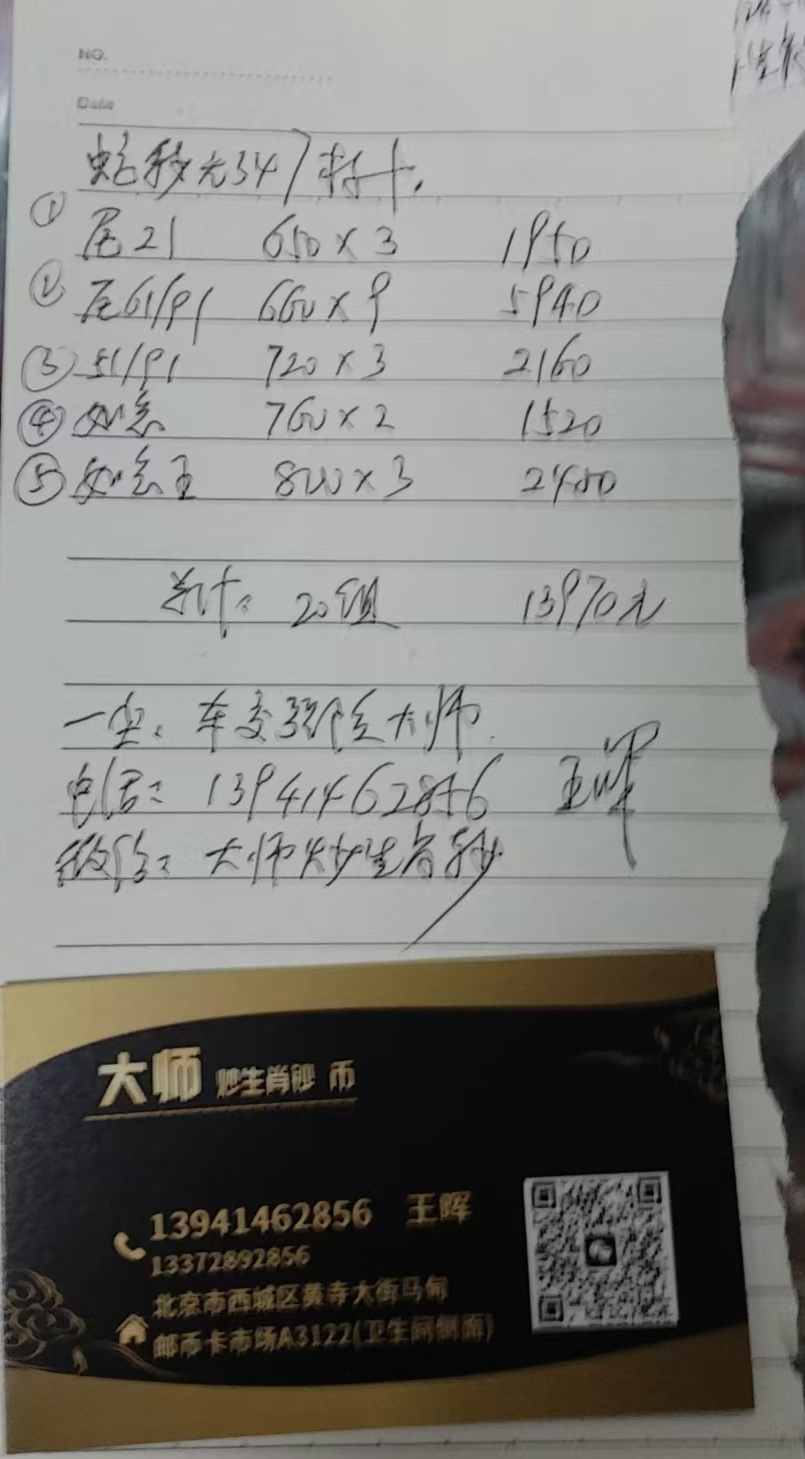 NO.
Date
蛇钞无347标十.
① 尾21 650×3 1950
② 尾61/91 660×9 5940
③ 51/91 720×3 2160
④ 如意 760×2 1520
⑤ 如意王 800×3 2400
共计: 20组 13970元
大师
电话: 13941462856 王晖
微信: 大师炒生肖钞
大师 炒生肖钞 币
13941462856 王晖
13372892856
北京市西城区黄寺大街马甸
邮币卡市场A3122(卫生间侧面)